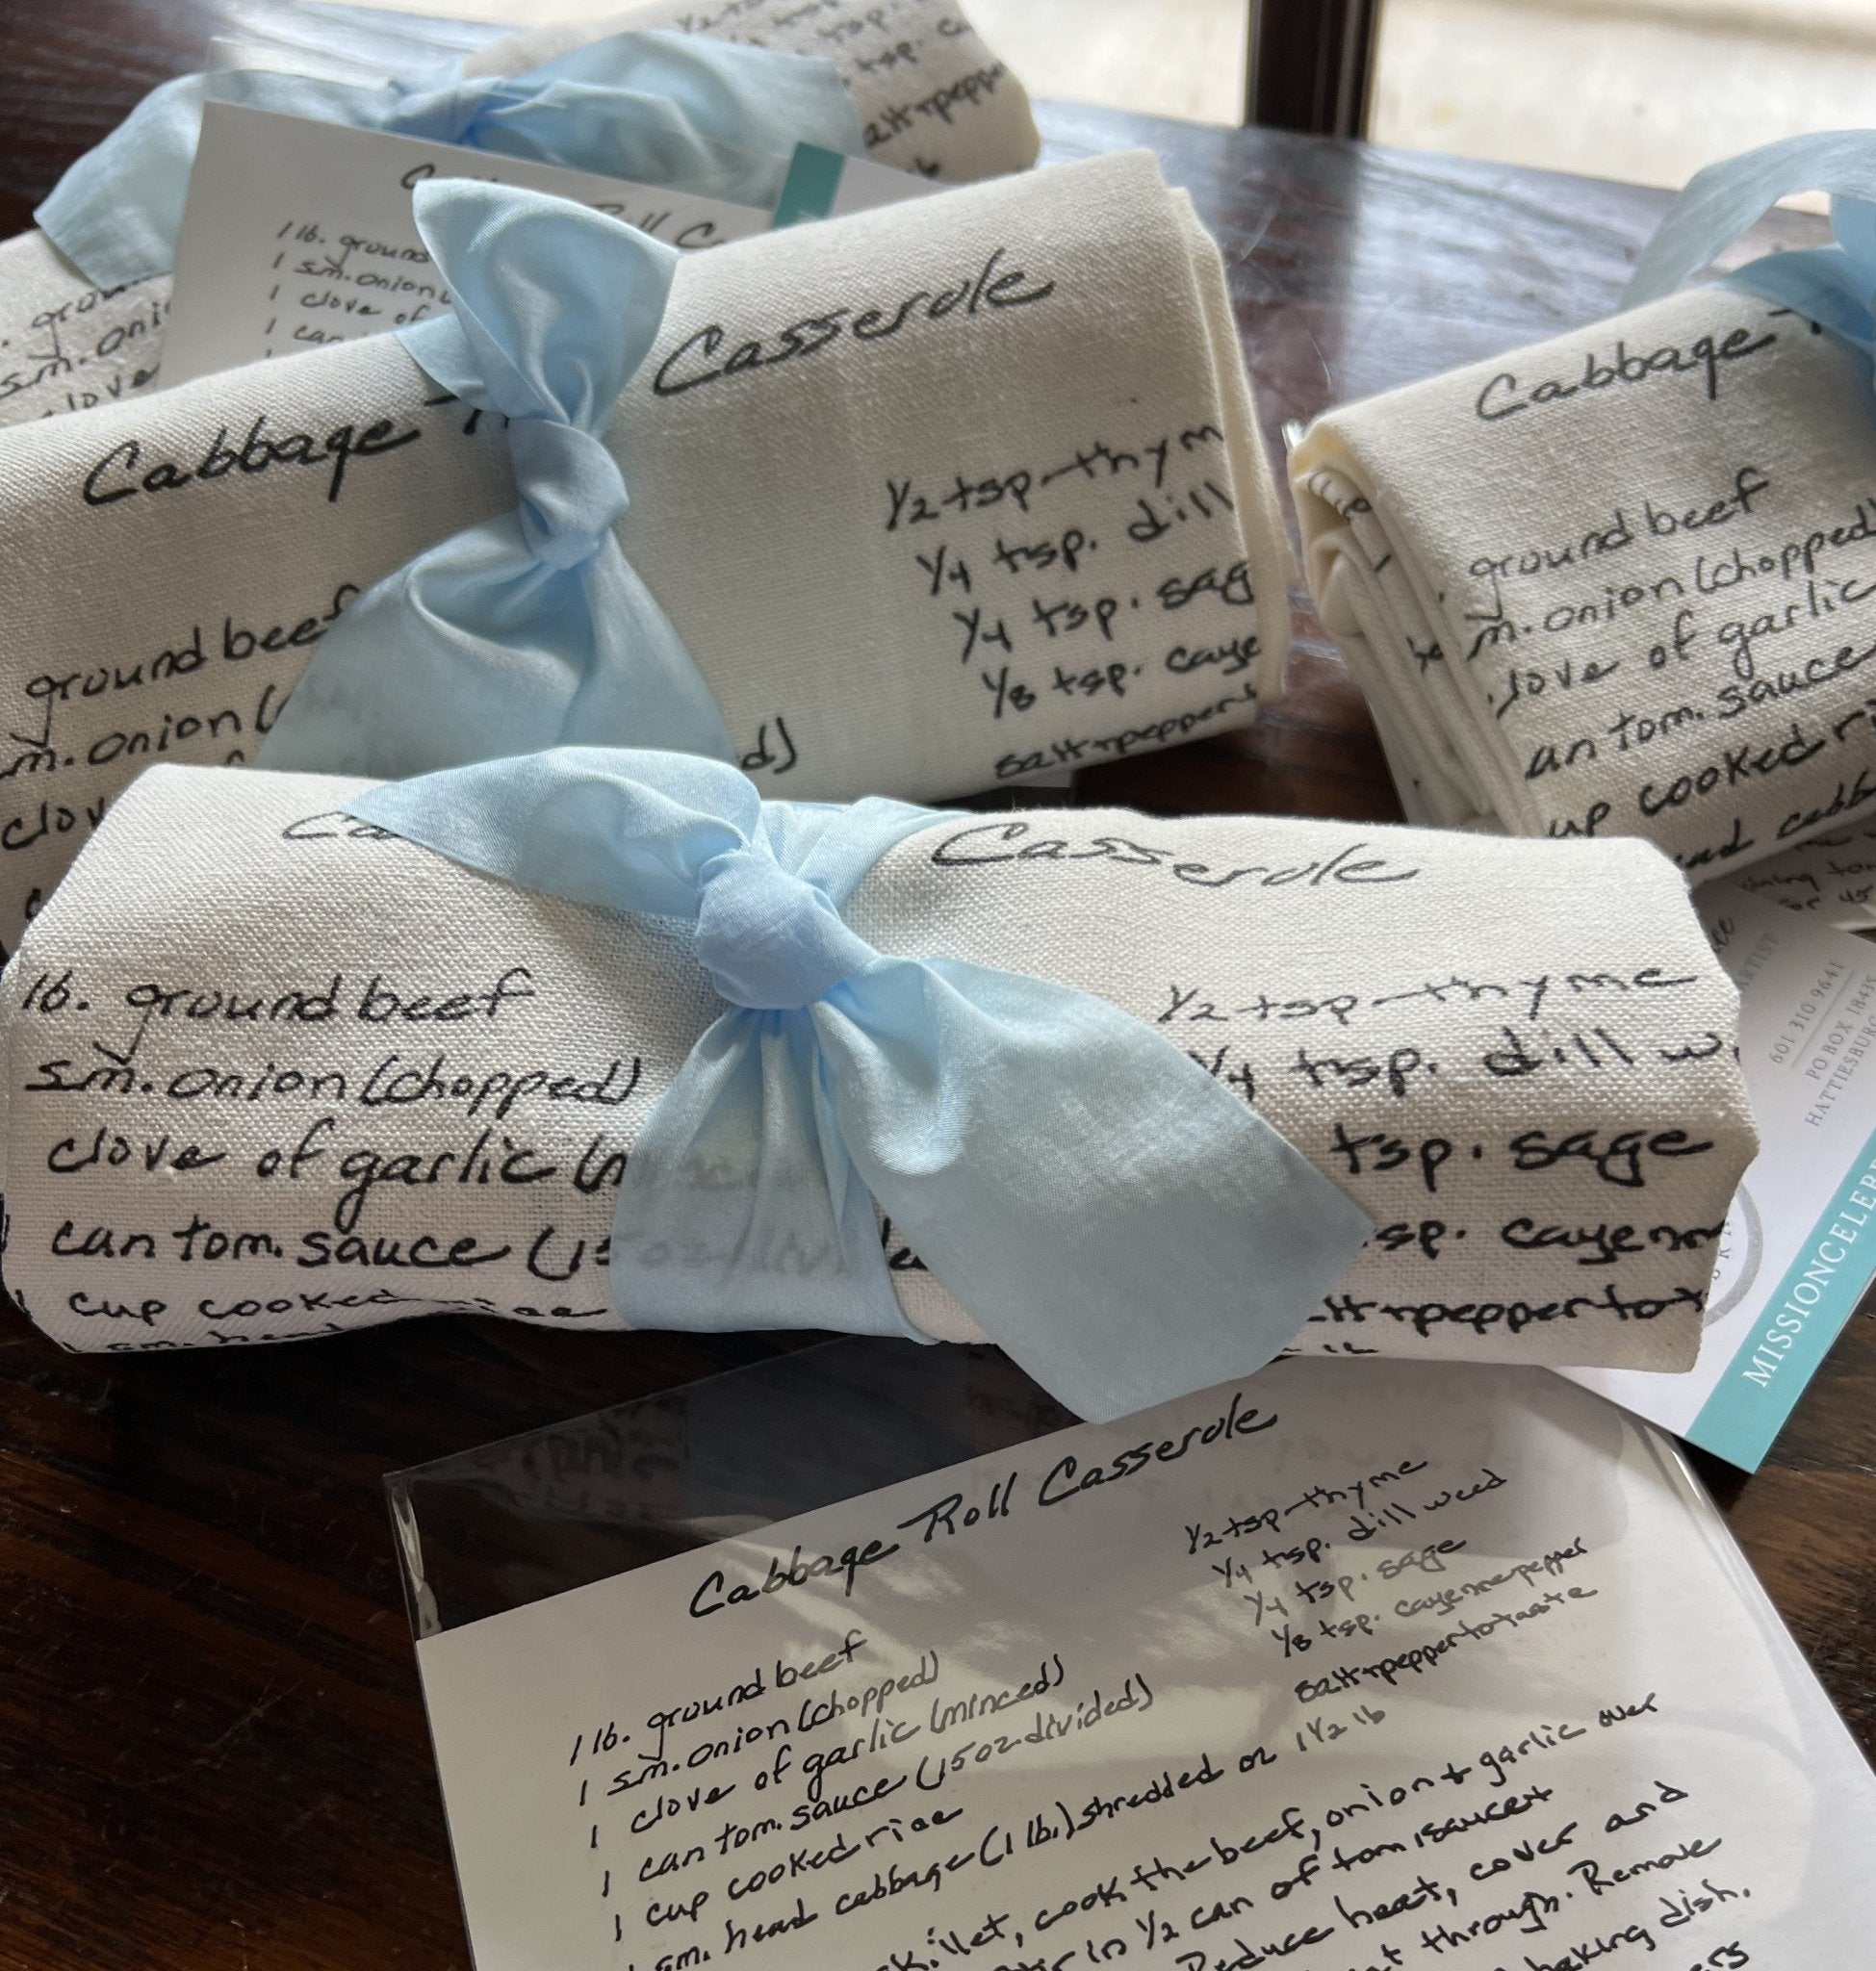 1/2 tsp. c
salt + peppe
Roll C
1 lb. ground
1 sm. onion
1 clove of
1 can
. grou
sm. oni
clove
Cabbage Casserole
1/2 tsp - thym
1/4 tsp. dill
1/4 tsp. sag
1/8 tsp. caye
salt + pepper t
ground beef
m. onion (
clov
d)
Cabbage
ground beef
m. onion (chopped)
clove of garlic
an tom. sauce
up cooked ri
ad cabba
Ca Casserole
lb. ground beef
sm. onion (chopped)
clove of garlic (m
can tom. sauce (15 oz
cup cooked rice
1 sm. head
1/2 tsp - thyme
1/4 tsp. dill w
tsp. sage
sp. cayenn
lt + pepper to t
601 310 9641
PO BOX 1845
HATTIESBU
MISSIONCELEB
Cabbage Roll Casserole
1 lb. ground beef
1 sm. onion (chopped)
1 clove of garlic (minced)
1 can tom. sauce (15 oz. divided)
1 cup cooked rice
1 sm. head cabbage (1 lb.) shredded or 1 1/2 lb
1/2 tsp - thyme
1/4 tsp. dill weed
1/4 tsp. sage
1/8 tsp. cayenne pepper
salt + pepper to taste
skillet, cook the beef, onion + garlic over
in 1/2 can of tom sauce +
Reduce heat, cover and
through. Remove
baking dish.
ers